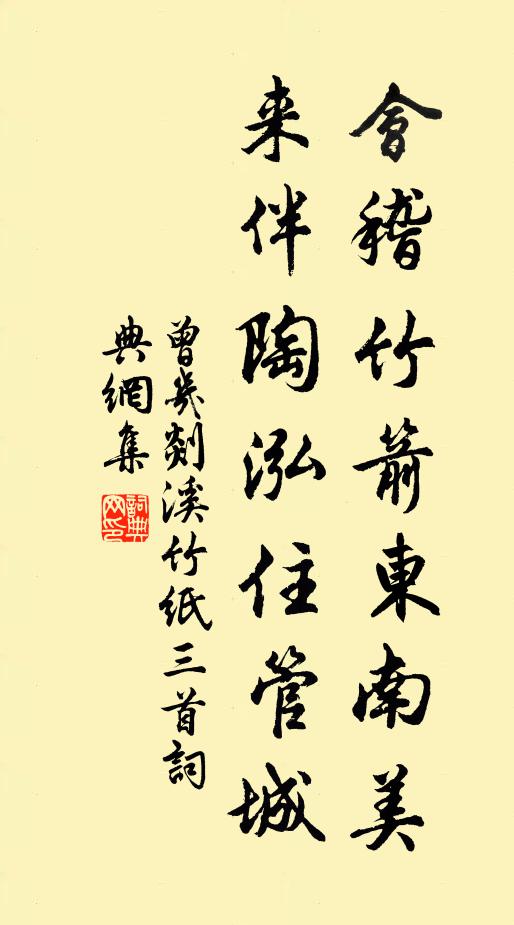 會稽竹箭東南美
来伴陶泓住管城
曾幾剡溪竹紙三首詞
典網集
詞典
网印